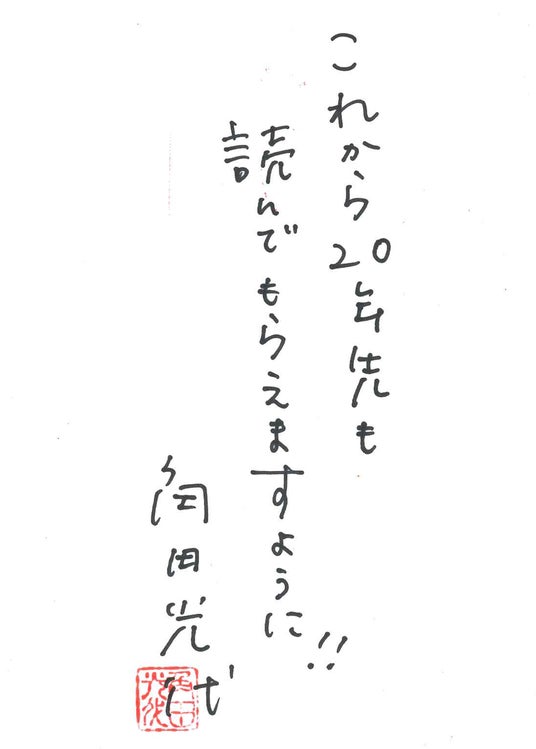 これから20年先も
読んでもらえますように!!
角田光代